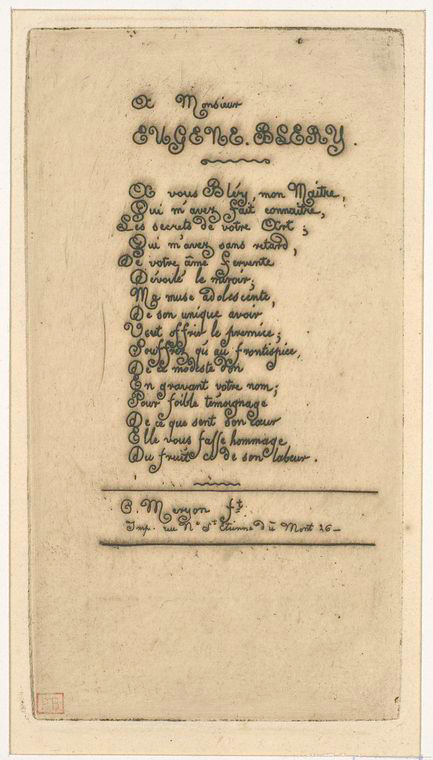 A Monsieur
EUGÈNE. BLERY.
A vous Bléry, mon Maître,
Qui m'avez fait connaître,
Les secrets de votre Art ;
Qui m'avez sans retard,
De votre âme fervente
Dévoilé le miroir,
Ma muse adolescente,
De son unique avoir
Veut offrir le premice ;
Souffrez qu'au frontispice,
De ce modeste don
En gravant votre nom ;
Pour foible témoignage
De ce que sent son cœur
Elle vous fasse hommage
Du fruit de son labeur .
C. Meryon ft
Imp. rue Ne St Etienne du Mont 26 -